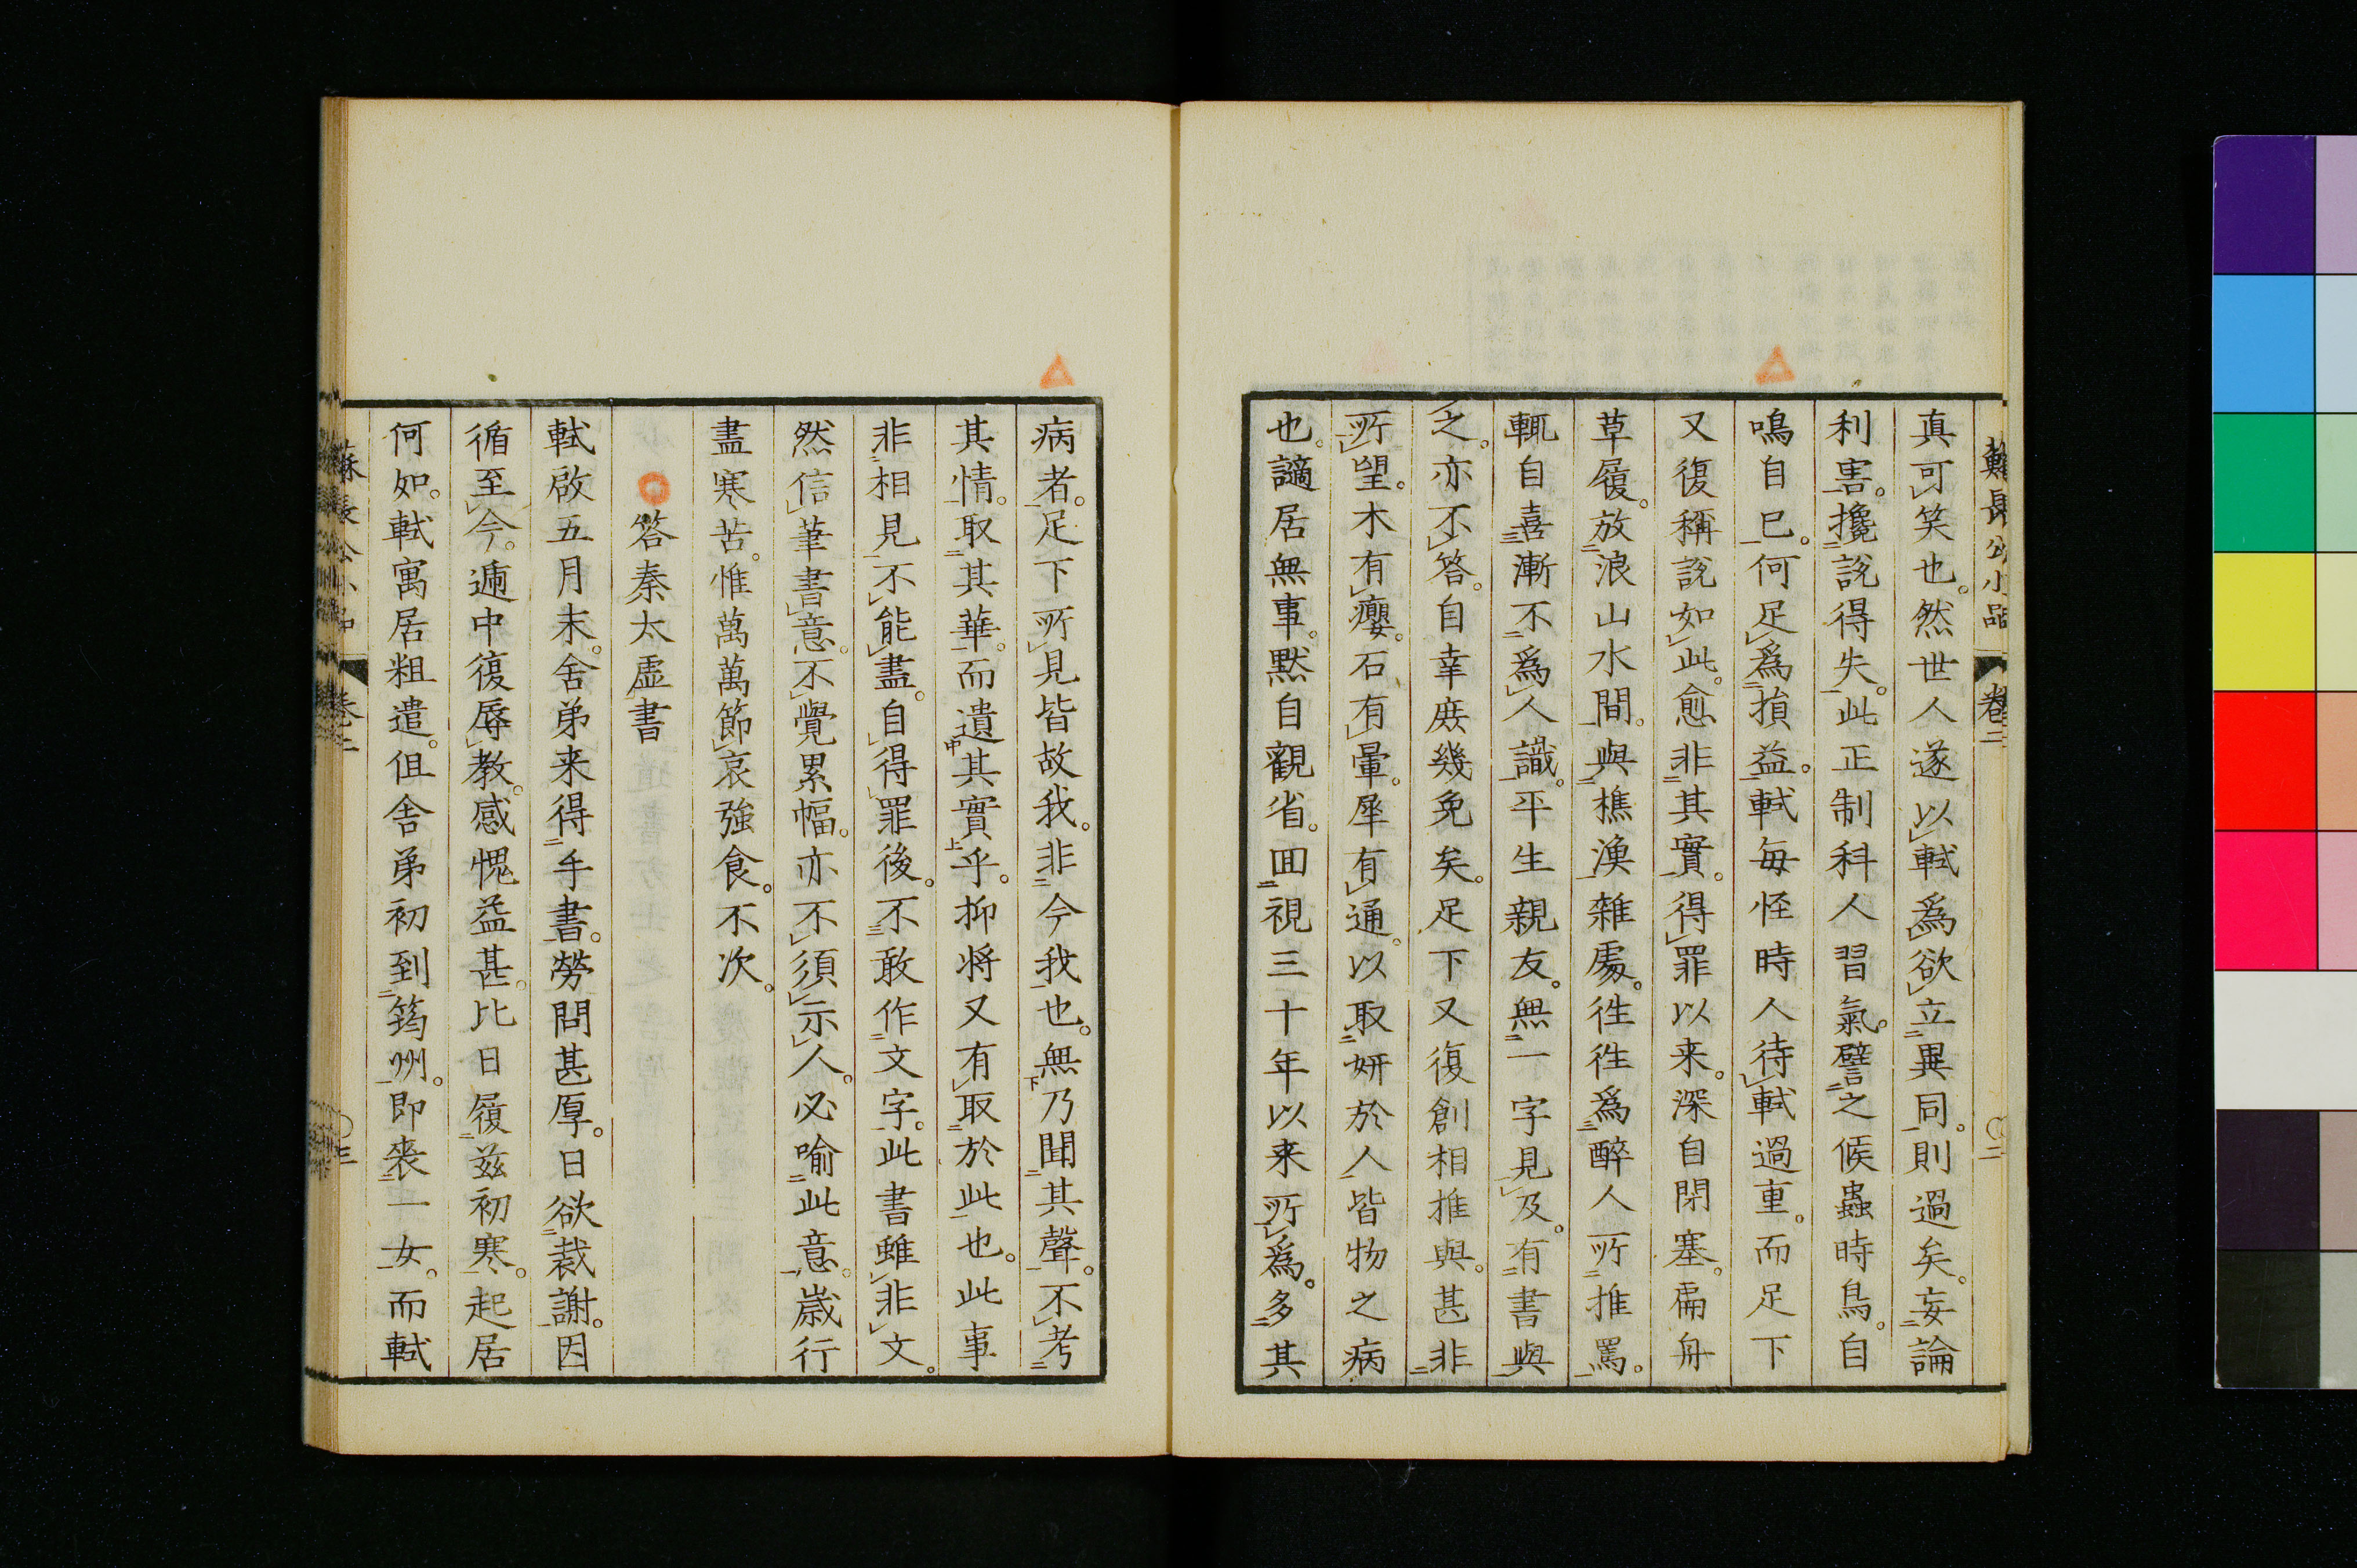 蘇長公小品 卷二 〇二
真可笑也。然世人遂以軾爲欲立異同。則過矣。妄論
利害。攙說得失。此正制科人習氣。譬之候蟲時鳥。自
鳴自已。何足爲損益。軾每怪時人待軾過重。而足下
又復稱說如此。愈非其實。得罪以来。深自閉塞。扁舟
草履。放浪山水間。與樵漁雜處。徃徃爲醉人所推罵。
輒自喜漸不爲人識。平生親友。無一字見及。有書與
之。亦不答。自幸庶幾免矣。足下又復創相推與。甚非
所望。木有癭。石有暈。犀有通。以取妍於人。皆物之病
也。謫居無事。默自觀省。囬視三十年以来所爲。多其
病者。足下所見皆故我。非今我也。無乃聞其聲。不考
其情。取其華。而遺其實乎。抑将又有取於此也。此事
非相見不能盡。自得罪後。不敢作文字。此書雖非文。
然信筆書意。不覺累幅。亦不須示人。必喻此意。歲行
盡寒苦。惟萬萬節哀強食。不次。
答秦太虛書
軾啟五月末。舍弟来得手書。勞問甚厚。日欲裁謝。因
循至今。遞中復辱教。感愧益甚。比日履玆初寒。起居
何如。軾寓居粗遣。但舍弟初到筠州。即喪一女。而軾
蘇長公小品 卷二 〇三